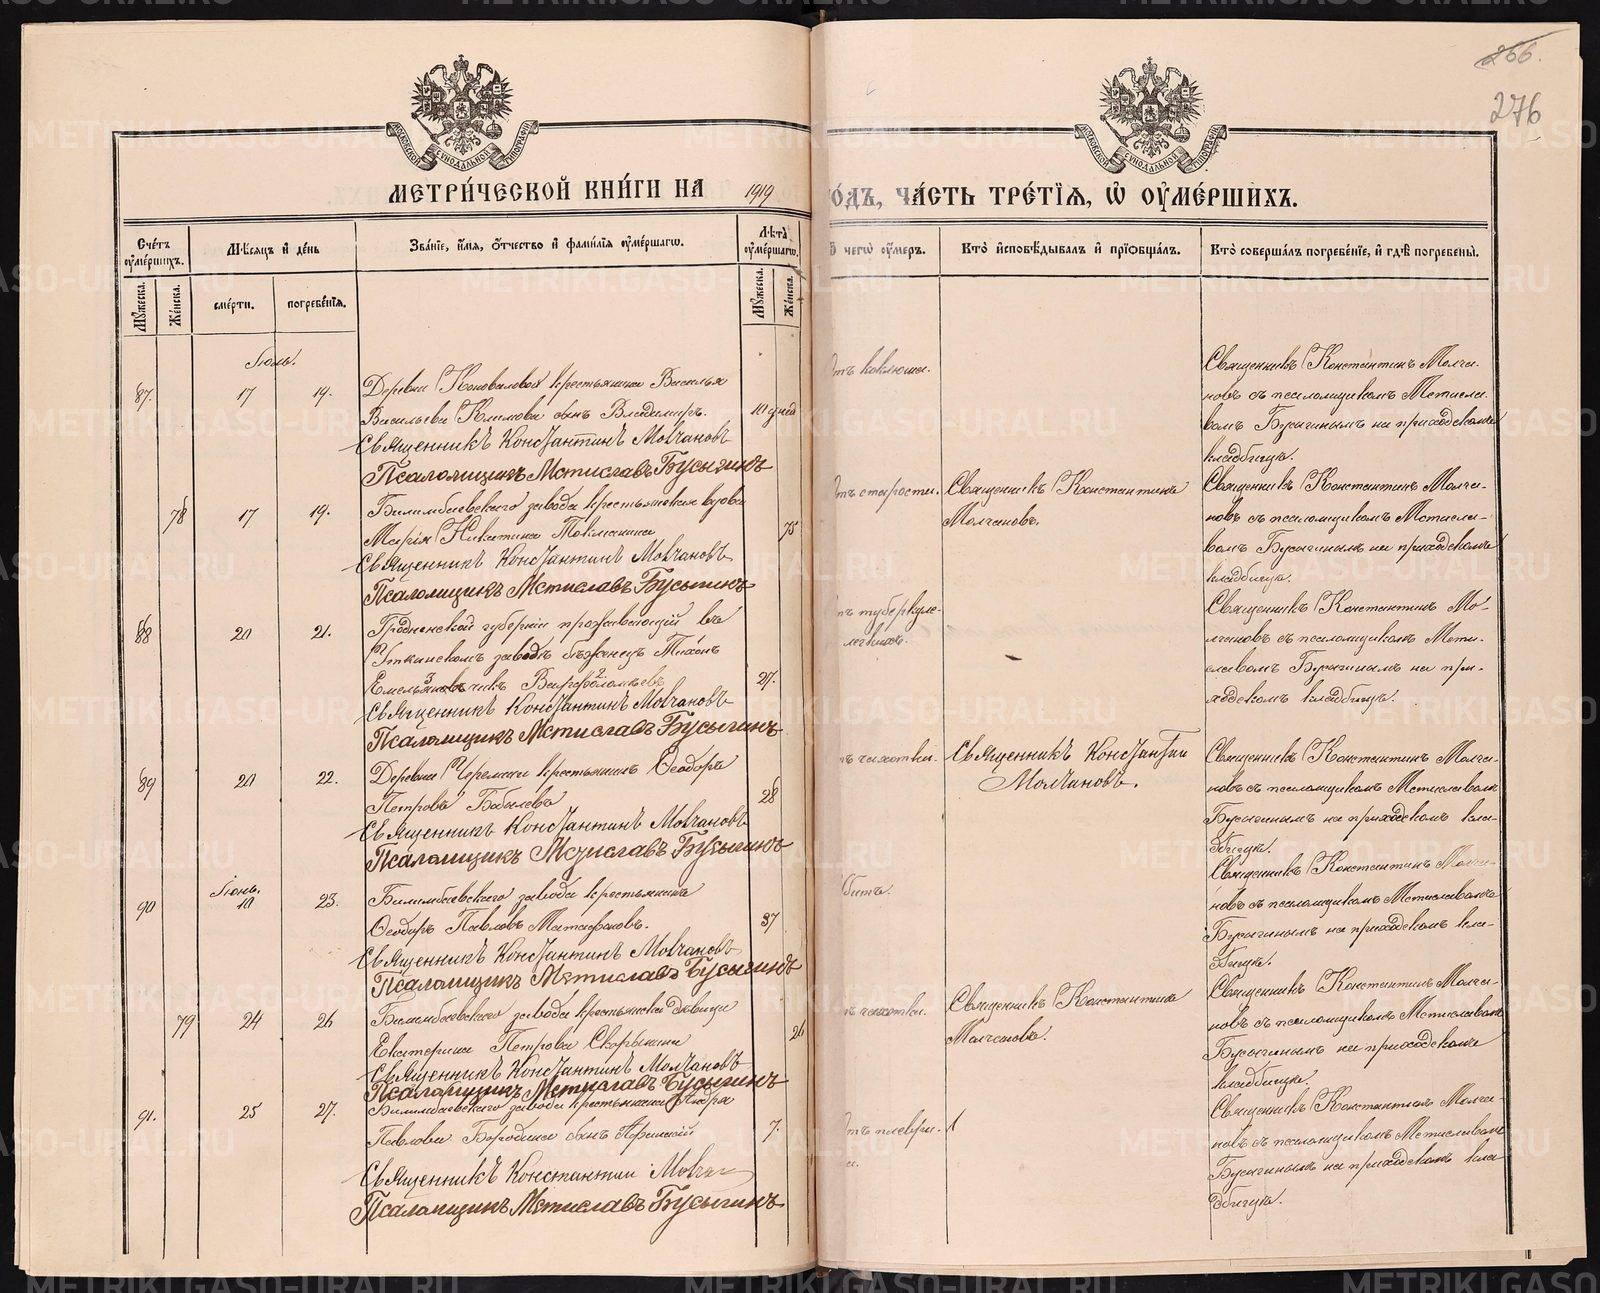 266.
276
МЕТРИ́ЧЕСКОЙ КНИ́ГИ НА 1919
ГОДЪ, ЧА́СТЬ ТРЕ́ТІѦ, Ѽ ОУ҆МЕ́РШИХЪ.
Сче́тъ оу҆ме́ршихъ.
Мѣ́сѧцъ и҆ де́нь
Зва́нїе, и҆́мѧ, ѻ҆́тчество и҆ фамилїѧ оу҆ме́ршагѡ.
Лѣ́та оу҆ме́ршагѡ.
чегѡ̀ оу҆́меръ.
Кто̀ и҆сповѣ́дывалъ и҆ прїѡбща́лъ.
Кто̀ соверша́лъ погребе́нїе, и҆ гдѣ̀ погребены̀.
Мꙋ́жеска.
Же́нска.
сме́рти.
погребе́нїѧ.
Мꙋ́жеска.
Же́нска.
Іюль.
87.
17
19.
Деревни Коноваловой крестьянина Василья
Васильева Климова сынъ Владимиръ.
10 дней
Священникъ Константинъ Молчановъ
Псаломщикъ Мстиславъ Бусыгинъ
отъ коклюша.
Священникъ Константинъ Молча-
новъ съ псаломщикомъ Мстисла-
вомъ Бусыгинымъ на приходскомъ
кладбищѣ.
78
17
19.
Билимбаевскаго завода крестьянская вдова
Марія Никитина Токманина
75
Священникъ Константинъ Молчановъ
Псаломщикъ Мстиславъ Бусыгинъ
отъ старости.
Священникъ Константинъ
Молчановъ.
Священникъ Константинъ Молча-
новъ съ псаломщикомъ Мстисла-
вомъ Бусыгинымъ на приходскомъ
кладбищѣ.
88
20
21.
Гродненской губерніи проживающій въ
Уткинскомъ заводѣ бѣженецъ Тихонъ
27.
Священникъ Константинъ Молчановъ
Псаломщикъ Мстиславъ Бусыгинъ
туберкуле-
легкихъ.
Священникъ Константинъ Мо-
лчановъ съ псаломщикомъ Мсти-
славомъ Бусыгинымъ на при-
ходскомъ кладбищѣ.
89
20
22.
Деревни Черемши крестьянинъ Ѳеодоръ
Петровъ Бабилевъ
28
Священникъ Константинъ Молчановъ
Псаломщикъ Мстиславъ Бусыгинъ
чахотки.
Священникъ Константин
Молчановъ.
Священникъ Константинъ Молча-
новъ съ псаломщикомъ Мстиславомъ
Бусыгинымъ на приходскомъ кла-
дбищѣ.
Іюнь.
90
10
23.
Билимбаевскаго завода крестьянинъ
Ѳеодоръ Павловъ Матафоновъ.
37
Священникъ Константинъ Молчановъ
Псаломщикъ Мстиславъ Бусыгинъ
убитъ.
Священникъ Константинъ Молча-
новъ съ псаломщикомъ Мстиславомъ
Бусыгинымъ на приходскомъ кла-
дбищѣ.
79
24
26
Билимбаевскаго завода крестьянская дѣвица
Екатерина Петрова Скорынина
26
Священникъ Константинъ Молчановъ
Псаломщикъ Мстиславъ Бусыгинъ
чахотки.
Священникъ Константинъ
Молчановъ.
Священникъ Константинъ Молча-
новъ съ псаломщикомъ Мстиславомъ
Бусыгинымъ на приходскомъ
кладбищѣ.
91.
25
27.
Билимбаевскаго завода крестьянина Петра
Павлова Бородина сынъ
7.
Священникъ Константин Молчан
Псаломщикъ Мстиславъ Бусыгинъ
отъ плеври-
Священникъ Константинъ Молча-
новъ съ псаломщикомъ Мстиславомъ
Бусыгинымъ на приходскомъ кла-
дбищѣ.
METRIKI.GASO-URAL.RU